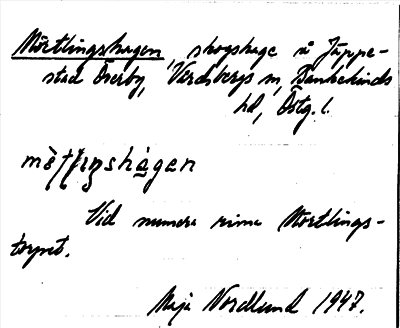 Mörtlingshagen, skogshage å Jäppe-
stad Överby, Värdsbergs sn, Bankekinds
hd, Östg. l.
Vid numera rivna Mörtlings-
torpet.
Maja Nordlund 1947.